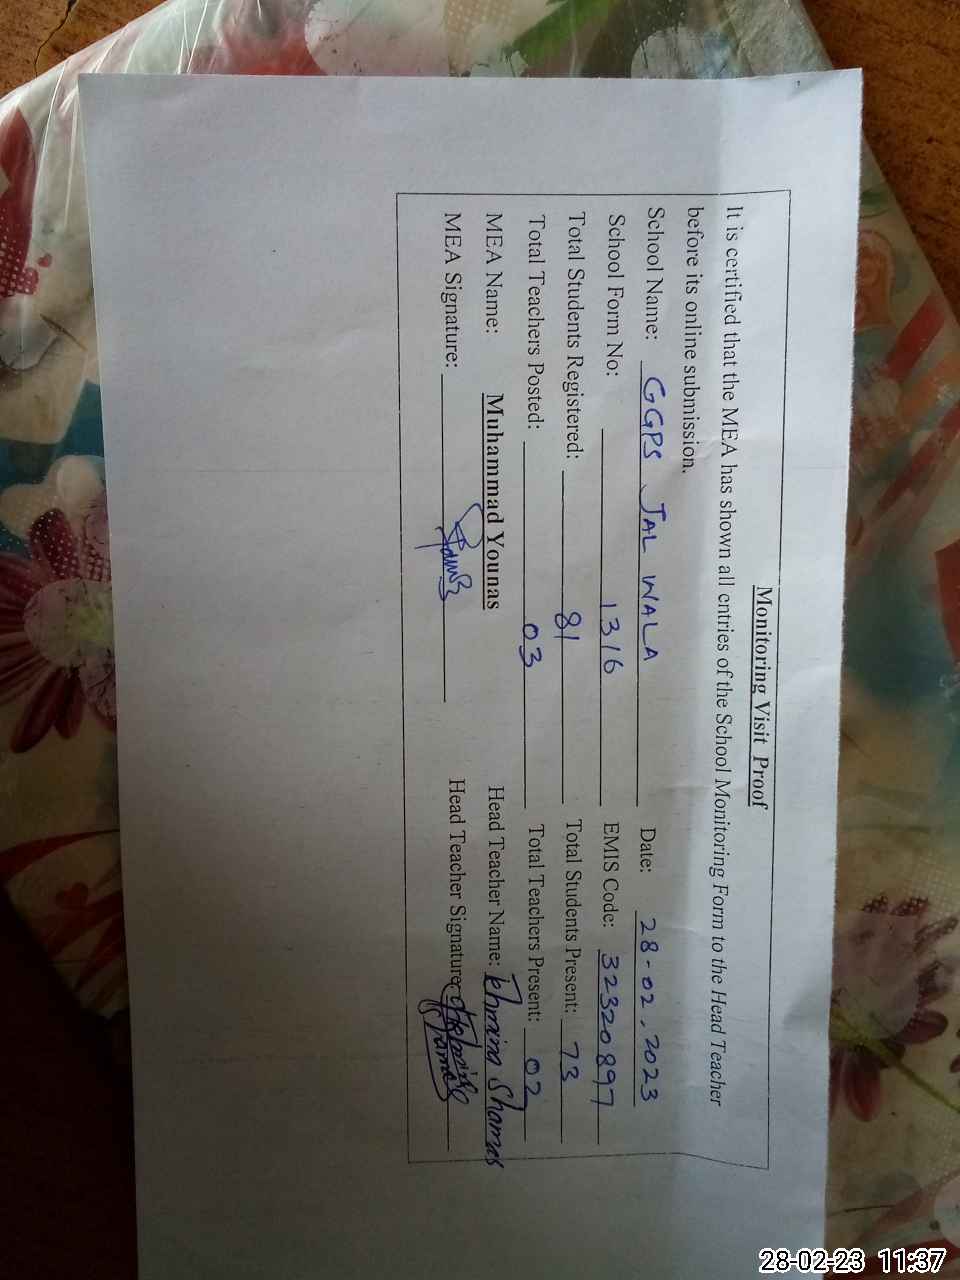 Monitoring Visit Proof
It is certified that the MEA has shown all entries of the School Monitoring Form to the Head Teacher
before its online submission.
School Name: GGPS JAL WALA Date: 28-02.2023
School Form No: 1316 EMIS Code: 32320897
Total Students Registered: 81 Total Students Present: 73
Total Teachers Posted: 03 Total Teachers Present: 02
MEA Name: Muhammad Younas Head Teacher Name: Shamas
MEA Signature: Head Teacher Signature:
28-02-23 11:37